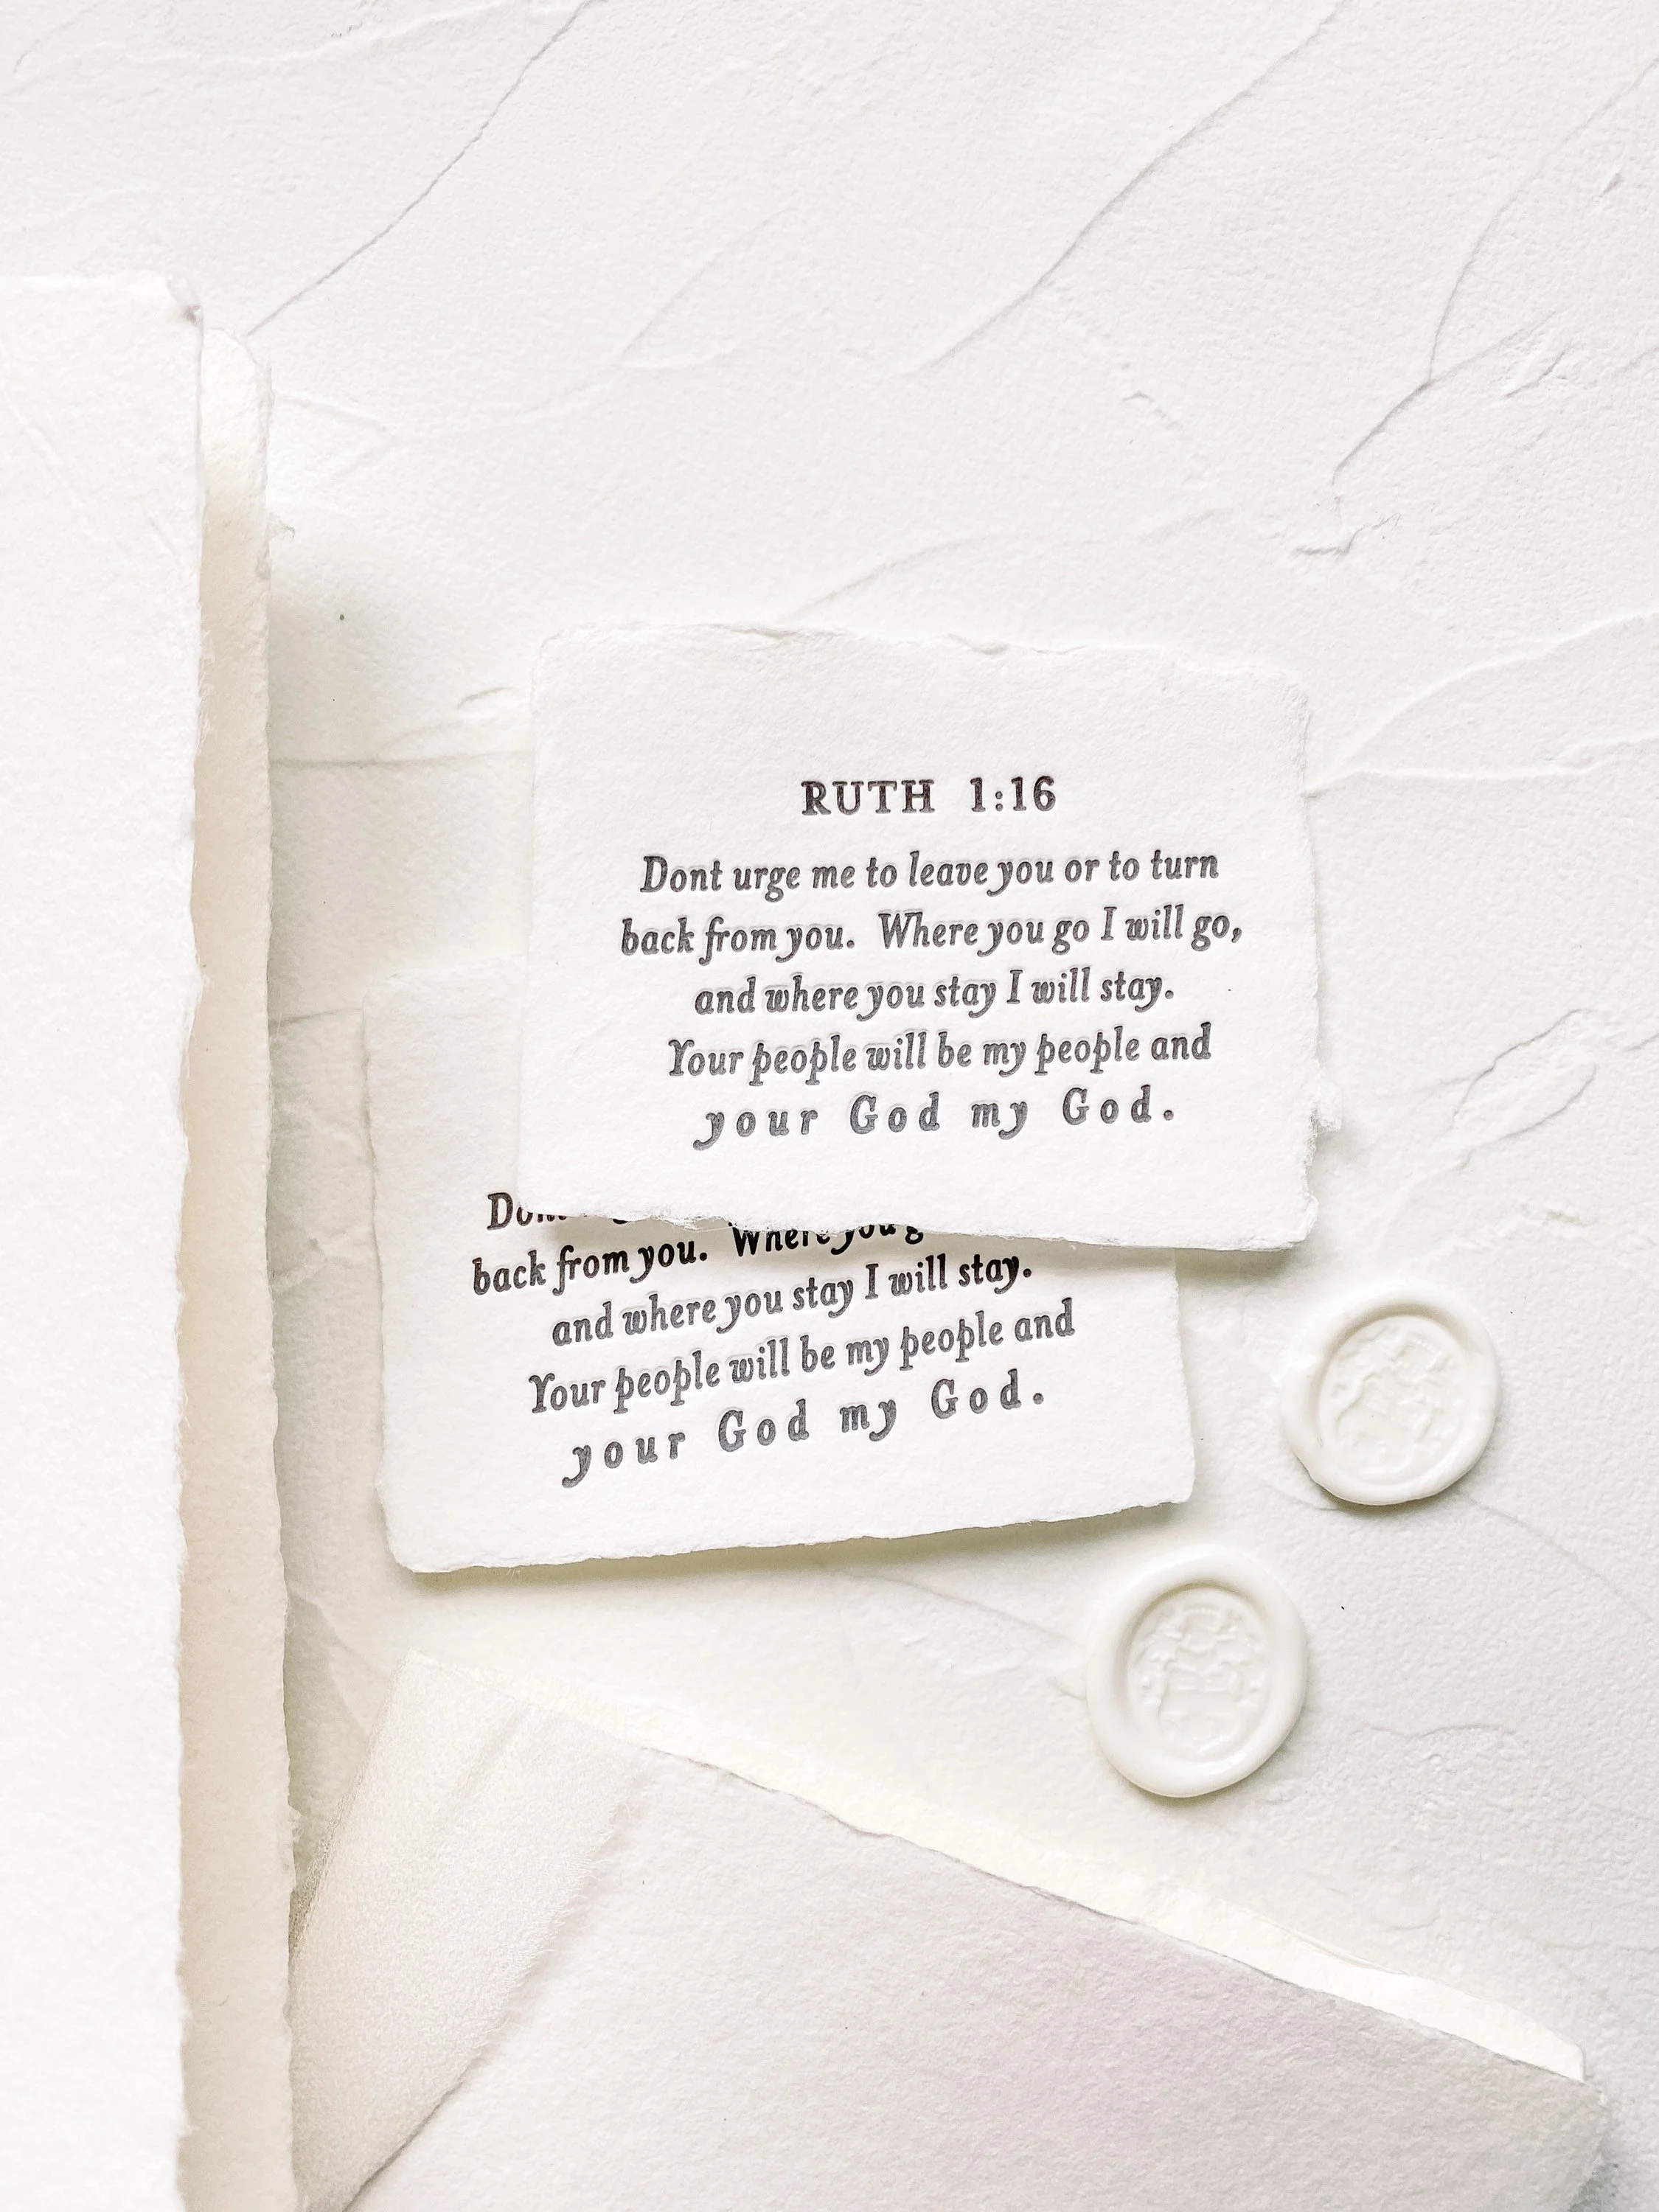 RUTH 1:16
Dont urge me to leave you or to turn
back from you. Where you go I will go,
and where you stay I will stay.
Your people will be my people and
your God my God.
back from you. Where you
and where you stay I will stay.
Your people will be my people and
your God my God.